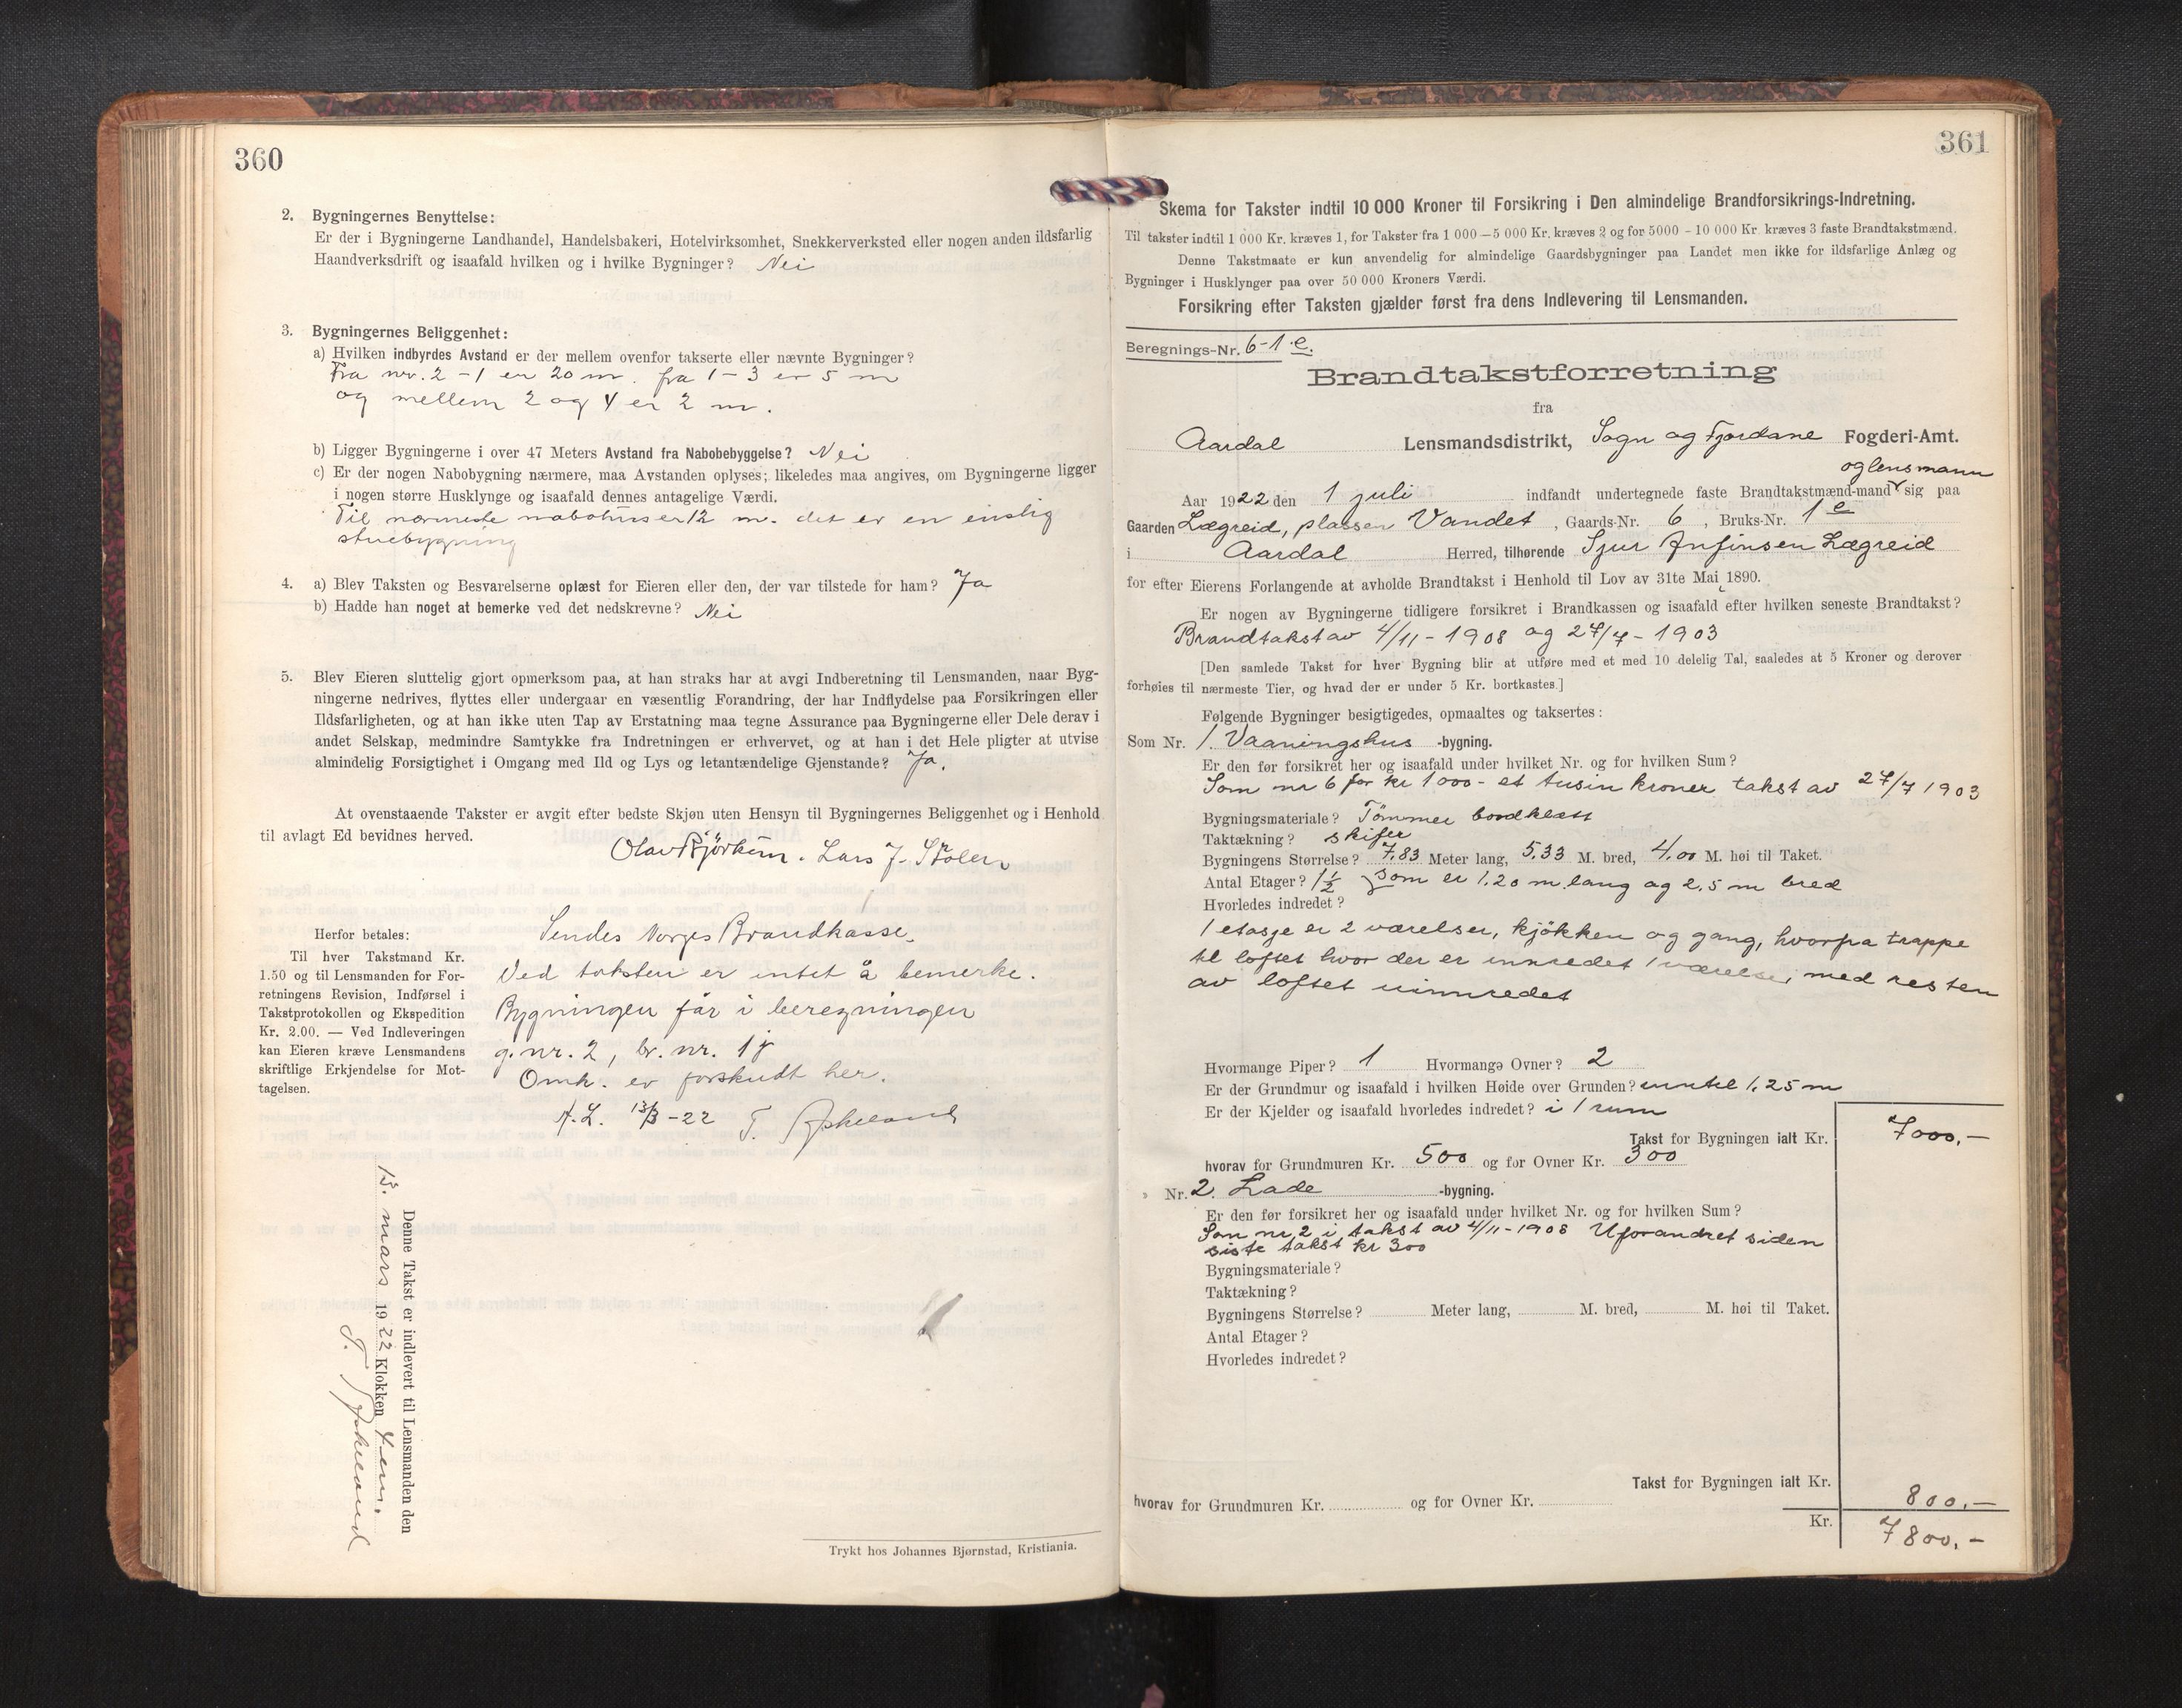 360
2. Bygningernes Benyttelse:
Er der i Bygningerne Landhandel, Handelsbakeri, Hotelvirksomhet, Snekkerverksted eller nogen anden ildsfarlig
Haandverksdrift og isaafald hvilken og i hvilke Bygninger? Nei
3. Bygningernes Beliggenhet:
a) Hvilken indbyrdes Avstand er der mellem ovenfor takserte eller nævnte Bygninger?
Fra nr. 2 - 1 er 20 m. fra 1 - 3 er 5 m
og mellem 2 og 4 er 2 m.
b) Ligger Bygningerne i over 47 Meters Avstand fra Nabobebyggelse? Nei
c) Er der nogen Nabobygning nærmere, maa Avstanden oplyses; likeledes maa angives, om Bygningerne ligger
i nogen større Husklynge og isaafald dennes antagelige Værdi.
Til nærmeste nabohus er 12 m. det er en enslig
stuebygning
4. a) Blev Taksten og Besvarelserne oplæst for Eieren eller den, der var tilstede for ham? Ja
b) Hadde han noget at bemerke ved det nedskrevne? Nei
5. Blev Eieren sluttelig gjort opmerksom paa, at han straks har at avgi Indberetning til Lensmanden, naar Byg-
ningerne nedrives, flyttes eller undergaar en væsentlig Forandring, der har Indflydelse paa Forsikringen eller
Ildsfarligheten, og at han ikke uten Tap av Erstatning maa tegne Assurance paa Bygningerne eller Dele derav i
andet Selskap, medmindre Samtykke fra Indretningen er erhvervet, og at han i det Hele pligter at utvise
almindelig Forsigtighet i Omgang med Ild og Lys og letantændelige Gjenstande? Ja.
At ovenstaaende Takster er avgit efter bedste Skjøn uten Hensyn til Bygningernes Beliggenhet og i Henhold
til avlagt Ed bevidnes herved.
Olav Bjørkum. Lars J. Stølen
Herfor betales:
Til hver Takstmand Kr.
1.50 og til Lensmanden for For-
retningens Revision, Indførsel i
Takstprotokollen og Ekspedition
Kr. 2.00. — Ved Indleveringen
kan Eieren kræve Lensmandens
skriftlige Erkjendelse for Mot-
tagelsen.
Sendes Norges Brandkasse.
Ved taksten er intet å bemerke.
Bygningen får i beregningen
g. nr. 2, br. nr. 1j
Omk. er forskudt her.
A.L. 13/3 - 22 T.
Denne Takst er indlevert til Lensmanden den
13. mars 1922 Klokken 4 em.
T.
Trykt hos Johannes Bjørnstad, Kristiania.
361
Skema for Takster indtil 10 000 Kroner til Forsikring i Den almindelige Brandforsikrings-Indretning.
Til takster indtil 1 000 Kr. kræves 1, for Takster fra 1 000 — 5 000 Kr. kræves 2 og for 5000 - 10 000 Kr. kræves 3 faste Brandtakstmænd.
Denne Takstmaate er kun anvendelig for almindelige Gaardsbygninger paa Landet men ikke for ildsfarlige Anlæg og
Bygninger i Husklynger paa over 50 000 Kroners Værdi.
Forsikring efter Taksten gjælder først fra dens Indlevering til Lensmanden.
Beregnings-Nr. 6-1 e.
Brandtakstforretning
fra
Aardal Lensmandsdistrikt, Sogn og Fjordane Fogderi-Amt.
og lensmann
Aar 1922 den 1 juli indfandt undertegnede faste Brandtakstmænd-mand sig paa
Gaarden Lægreid, plassen Vandet, Gaards-Nr. 6, Bruks-Nr. 1 e
i Aardal Herred, tilhørende Sjur Anfinsen Lægreid
for efter Eierens Forlangende at avholde Brandtakst i Henhold til Lov av 31te Mai 1890.
Er nogen av Bygningerne tidligere forsikret i Brandkassen og isaafald efter hvilken seneste Brandtakst?
Brandtakst av 4/11 - 1908 og 27/7 - 1903
[Den samlede Takst for hver Bygning blir at utføre med et med 10 delelig Tal, saaledes at 5 Kroner og derover
forhøies til nærmeste Tier, og hvad der er under 5 Kr. bortkastes.]
Følgende Bygninger besigtigedes, opmaaltes og taksertes:
Som Nr. 1. Vaaningshus -bygning.
Er den før forsikret her og isaafald under hvilket Nr. og for hvilken Sum?
Som nr 6 for kr 1000 - et tusin kroner takst av 27/7 1903
Bygningsmateriale? Tömmer bordklætt
Taktækning? skifer
Bygningens Størrelse? 7,83 Meter lang, 5.33 M. bred, 4.00 M. høi til Taket.
Antal Etager? 1½ som er 1.20 m. lang og 2.5 m bred
Hvorledes indredet?
1 etasje er 2 værelser, kjökken og gang, hvorfra trappe
til loftet hvor der er innredet 1 værelse, med resten
av loftet uinnredet
Hvormange Piper? 1 Hvormange Ovner? 2
Er der Grundmur og isaafald i hvilken Høide over Grunden? inntil 1.25 m
Er der Kjelder og isaafald hvorledes indredet? i 1 rum
Takst for Bygningen ialt Kr. 7000.-
hvorav for Grundmuren Kr. 500 og for Ovner Kr. 300
Nr. 2. Lade -bygning.
Er den før forsikret her og isaafald under hvilket Nr. og for hvilken Sum?
Som nr 2 i takst av 4/11 - 1908 Uforandret siden
siste takst kr 300
Bygningsmateriale?
Taktækning?
Bygningens Størrelse? Meter lang, M. bred, M. høi til Taket.
Antal Etager?
Hvorledes indredet?
Takst for Bygningen ialt Kr. 800.-
hvorav for Grundmuren Kr. og for Ovner Kr.
Kr. 7800.-